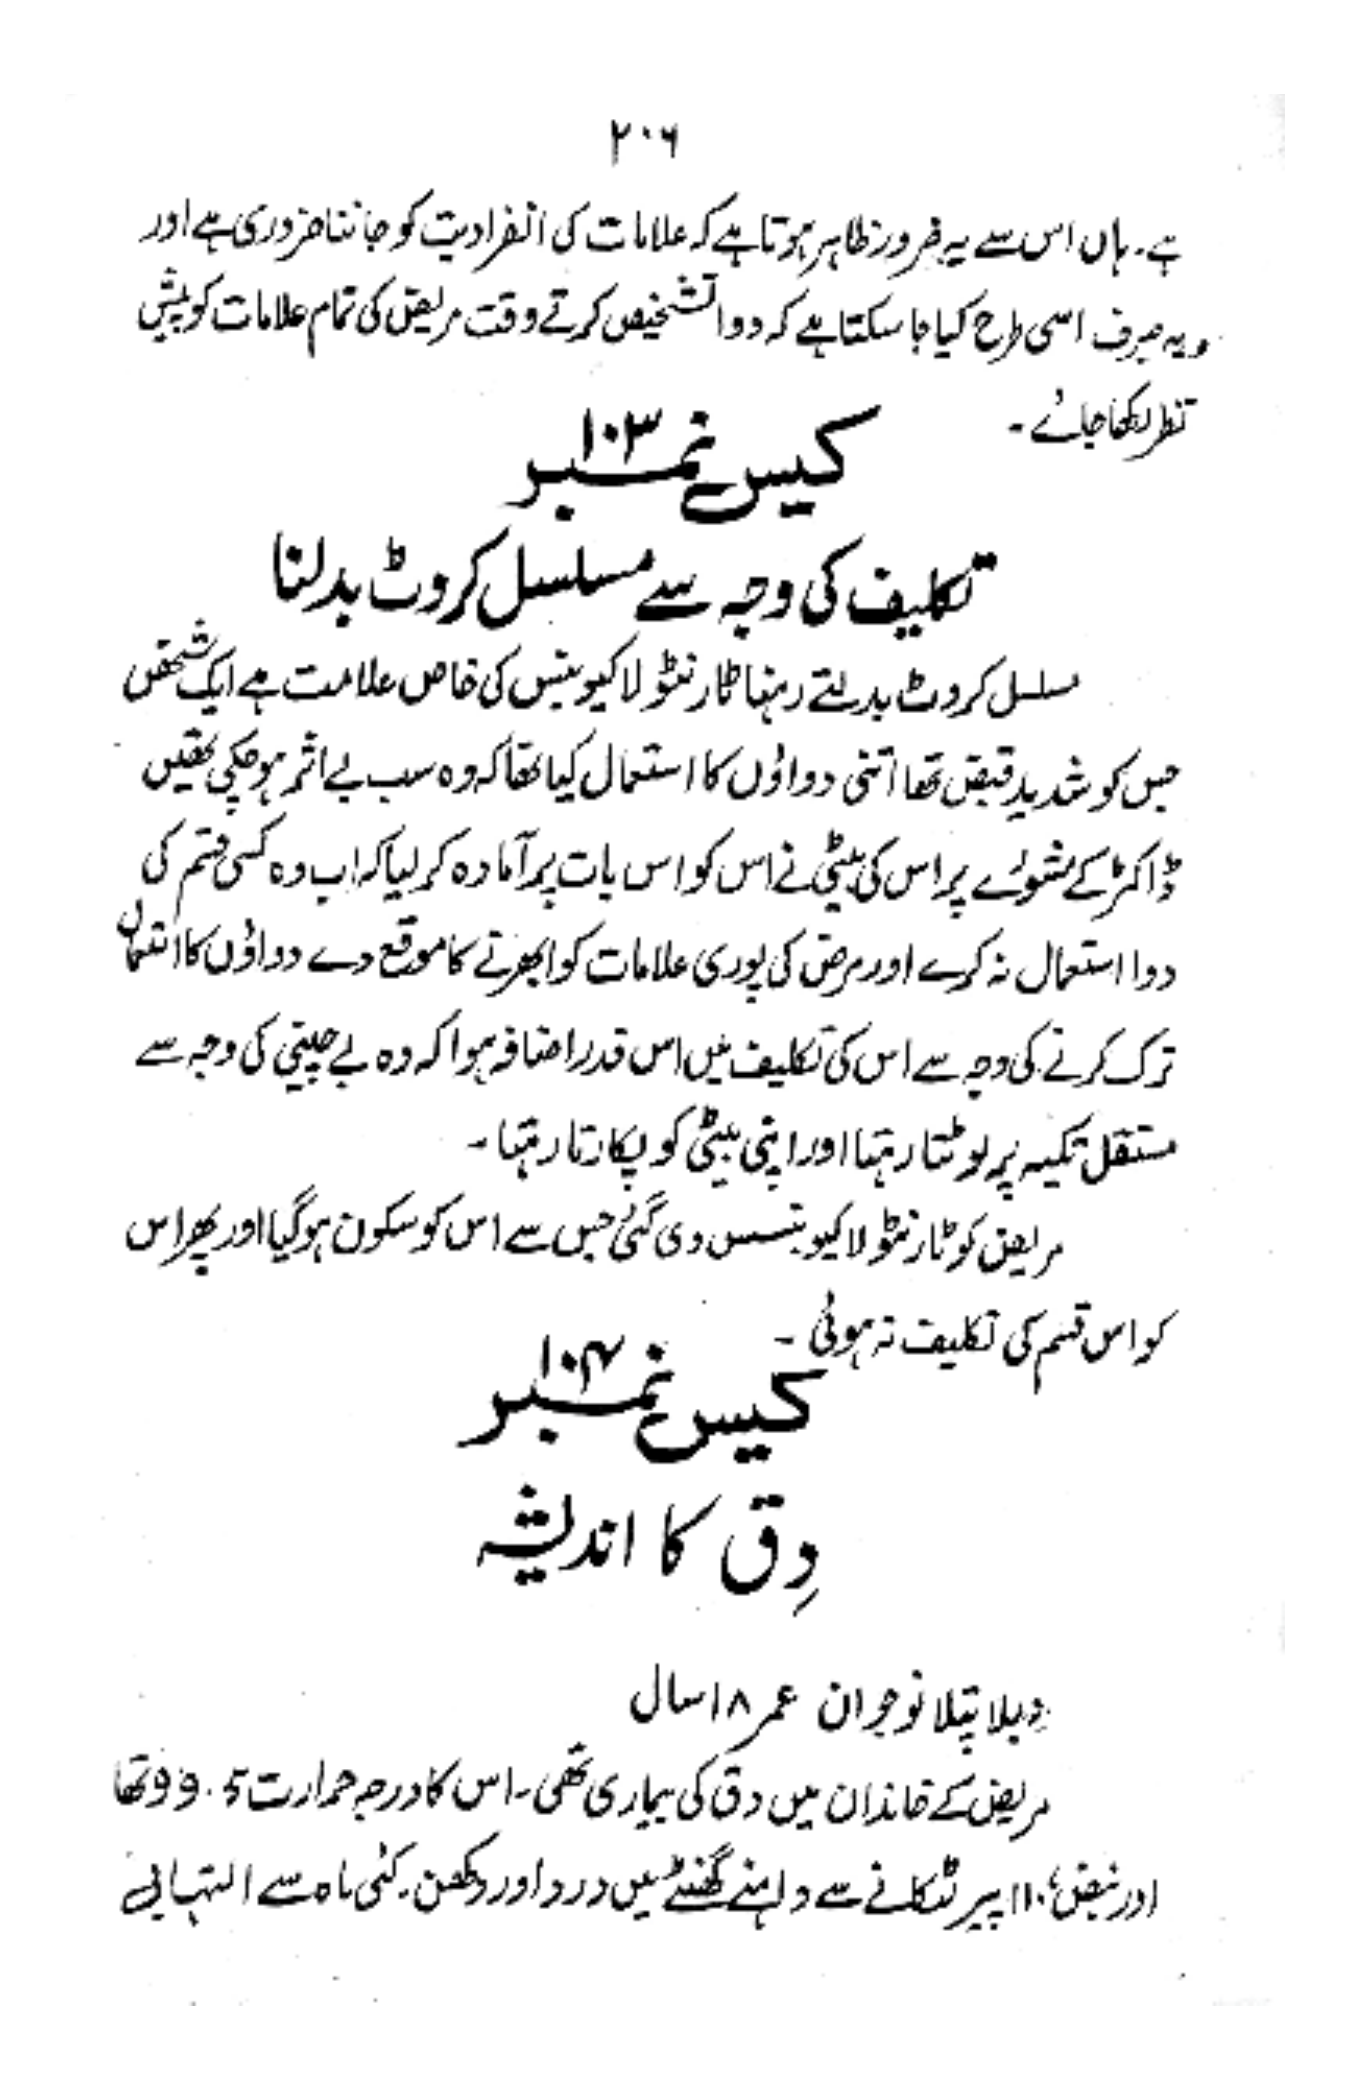 ۲۰۶
ہے۔ ہاں اس سے یہ ضرور ظاہر ہوتا ہے کہ علامات کی انفرادیت کو جاننا ضروری ہے اور
ویہ صرف اسی طرح کیا جا سکتا ہے کہ دوا تشخیص کرتے وقت مریض کی تمام علامات کو پیش
نظر رکھا جائے۔
کیس نمبر ۱۰۳
تکلیف کی وجہ سے مسلسل کروٹ بدلنا
مسلسل کروٹ بدلتے رہنا ٹارنٹولا کیوبنیس کی خاص علامت ہے ایک شخص
جس کو شدید قبض تھا اتنی دواؤں کا استعمال کیا تھا کہ وہ سب بے اثر ہو چکی تھیں
ڈاکٹر کے مشورے پر اس کی بیٹی نے اس کو اس بات پر آمادہ کر لیا کہ اب وہ کسی قسم کی
دوا استعمال نہ کرے اور مرض کی پوری علامات کو ابھرنے کا موقع دے دواؤں کا استعمال
ترک کرنے کی وجہ سے اس کی تکلیف میں اس قدر اضافہ ہوا کہ وہ بے چینی کی وجہ سے
مستقل تکیہ پر لوٹتا رہتا اور اپنی بیٹی کو پکارتا رہتا۔
مریض کو ٹارنٹولا کیوبنسس دی گئی جس سے اس کو سکون ہو گیا اور پھر اس
کو اس قسم کی تکلیف نہ ہوئی۔
کیس نمبر ۱۰۴
دِق کا اندیشہ
دبلا پتلا نوجوان عمر ۱۸ سال
مریض کے خاندان میں دق کی بیماری تھی۔ اس کا درجہ حرارت 99.5 تھا
اور نبض ۱۱۰، پیر لٹکانے سے داہنے گھٹنے میں درد اور دکھن۔ کئی ماہ سے التہابی